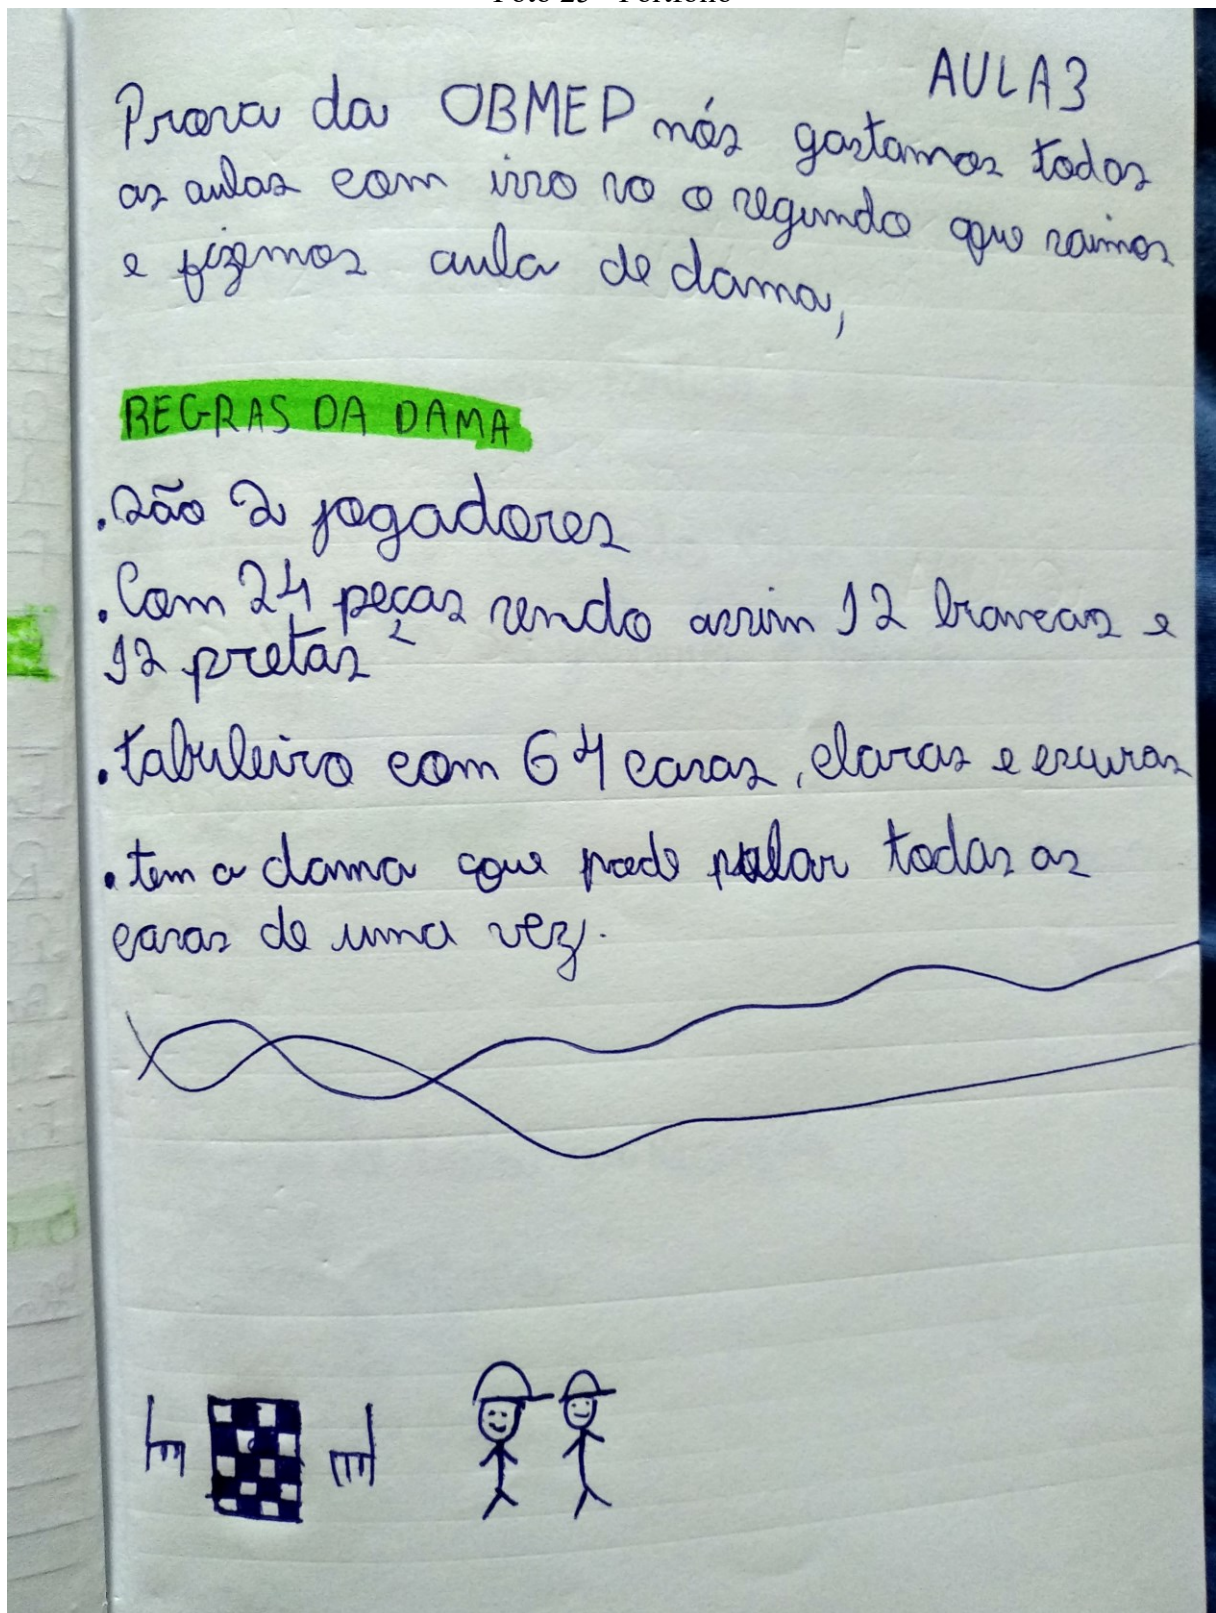 AULA 3
Prova da OBMEP nós gastamos todas
as aulas com isso so o segundo que saimos
e fizemos aula de dama,
REGRAS DA DAMA
. São 2 jogadores
. Com 24 peças sendo assim 12 brancas e
12 pretas
. tabuleiro com 64 casas, claras e escuras
. tem a dama que pode pular todas as
casas de uma vez.